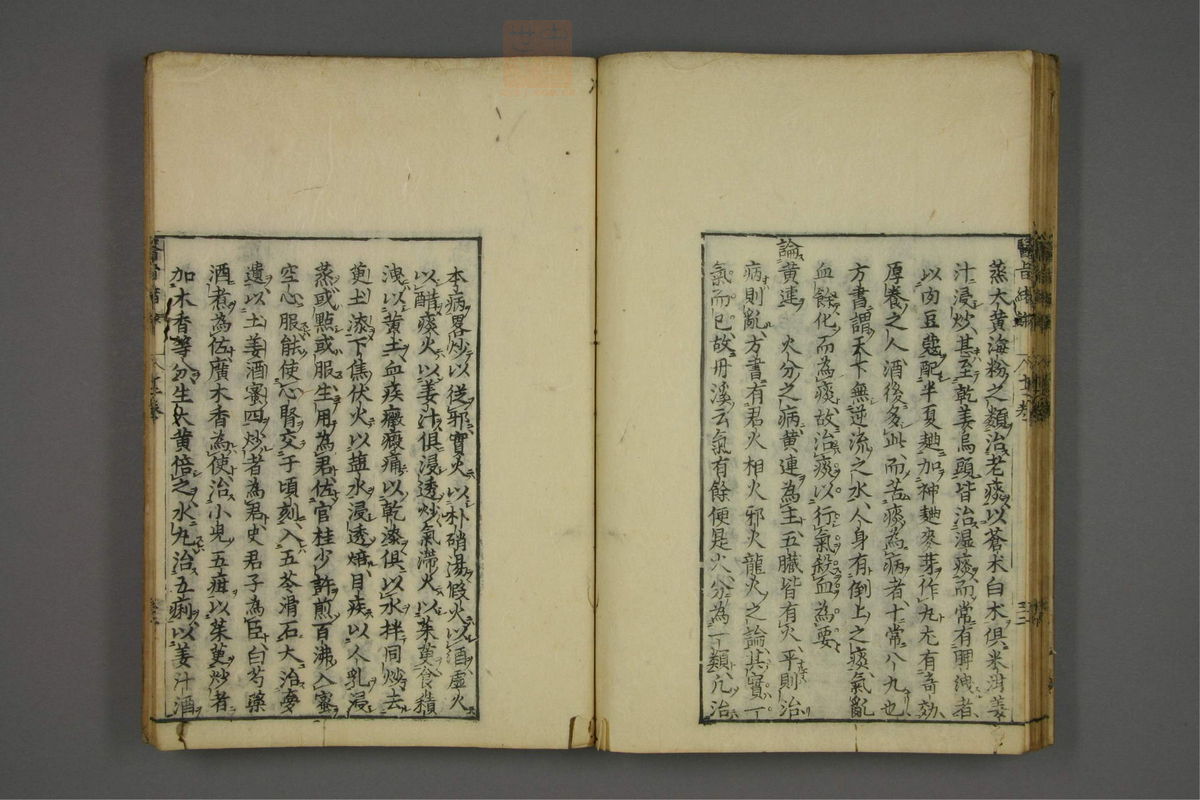 蒸大黄海粉之類治老痰以蒼朮白朮俱米泔姜
汁浸炒甚至乾姜烏頭皆治湿痰而常有脾洩者
以肉豆蔻配半夏麯加神麯麥芽作丸尤有奇効
厚養之人酒後多此而苦痰為病者十常八九也
方書謂天下無逆流之水人身有倒上之痰氣亂
血餘化而為痰故治痰以行氣殺血為要
論黄連 火分之病黄連為主五臟皆有火平則治
病則亂方書有君火相火邪火龍火之論其實一
氣而已故丹溪云氣有餘便是火分為一類凢治
本病畧炒以從邪實火以朴硝湯假火以酒虛火
以醋痰火以姜汁俱浸透炒氣滯火以茱萸食積
洩以黄土血疾癥瘕痛以乾漆俱以水拌同炒去
萸土漆下焦伏火以盐水浸透焙目疾以人乳浸
蒸或點或服生用為君佐官桂少許煎百沸入蜜
空心服能使心腎交于頃刻入五苓滑石大治夢
遺以土姜酒蜜四炒者為君史君子為臣白芍藥
酒煮為佐廣木香為使治小兒五疳以茱萸炒者
加木香等分生大黄倍之水丸治五痢以姜汁酒